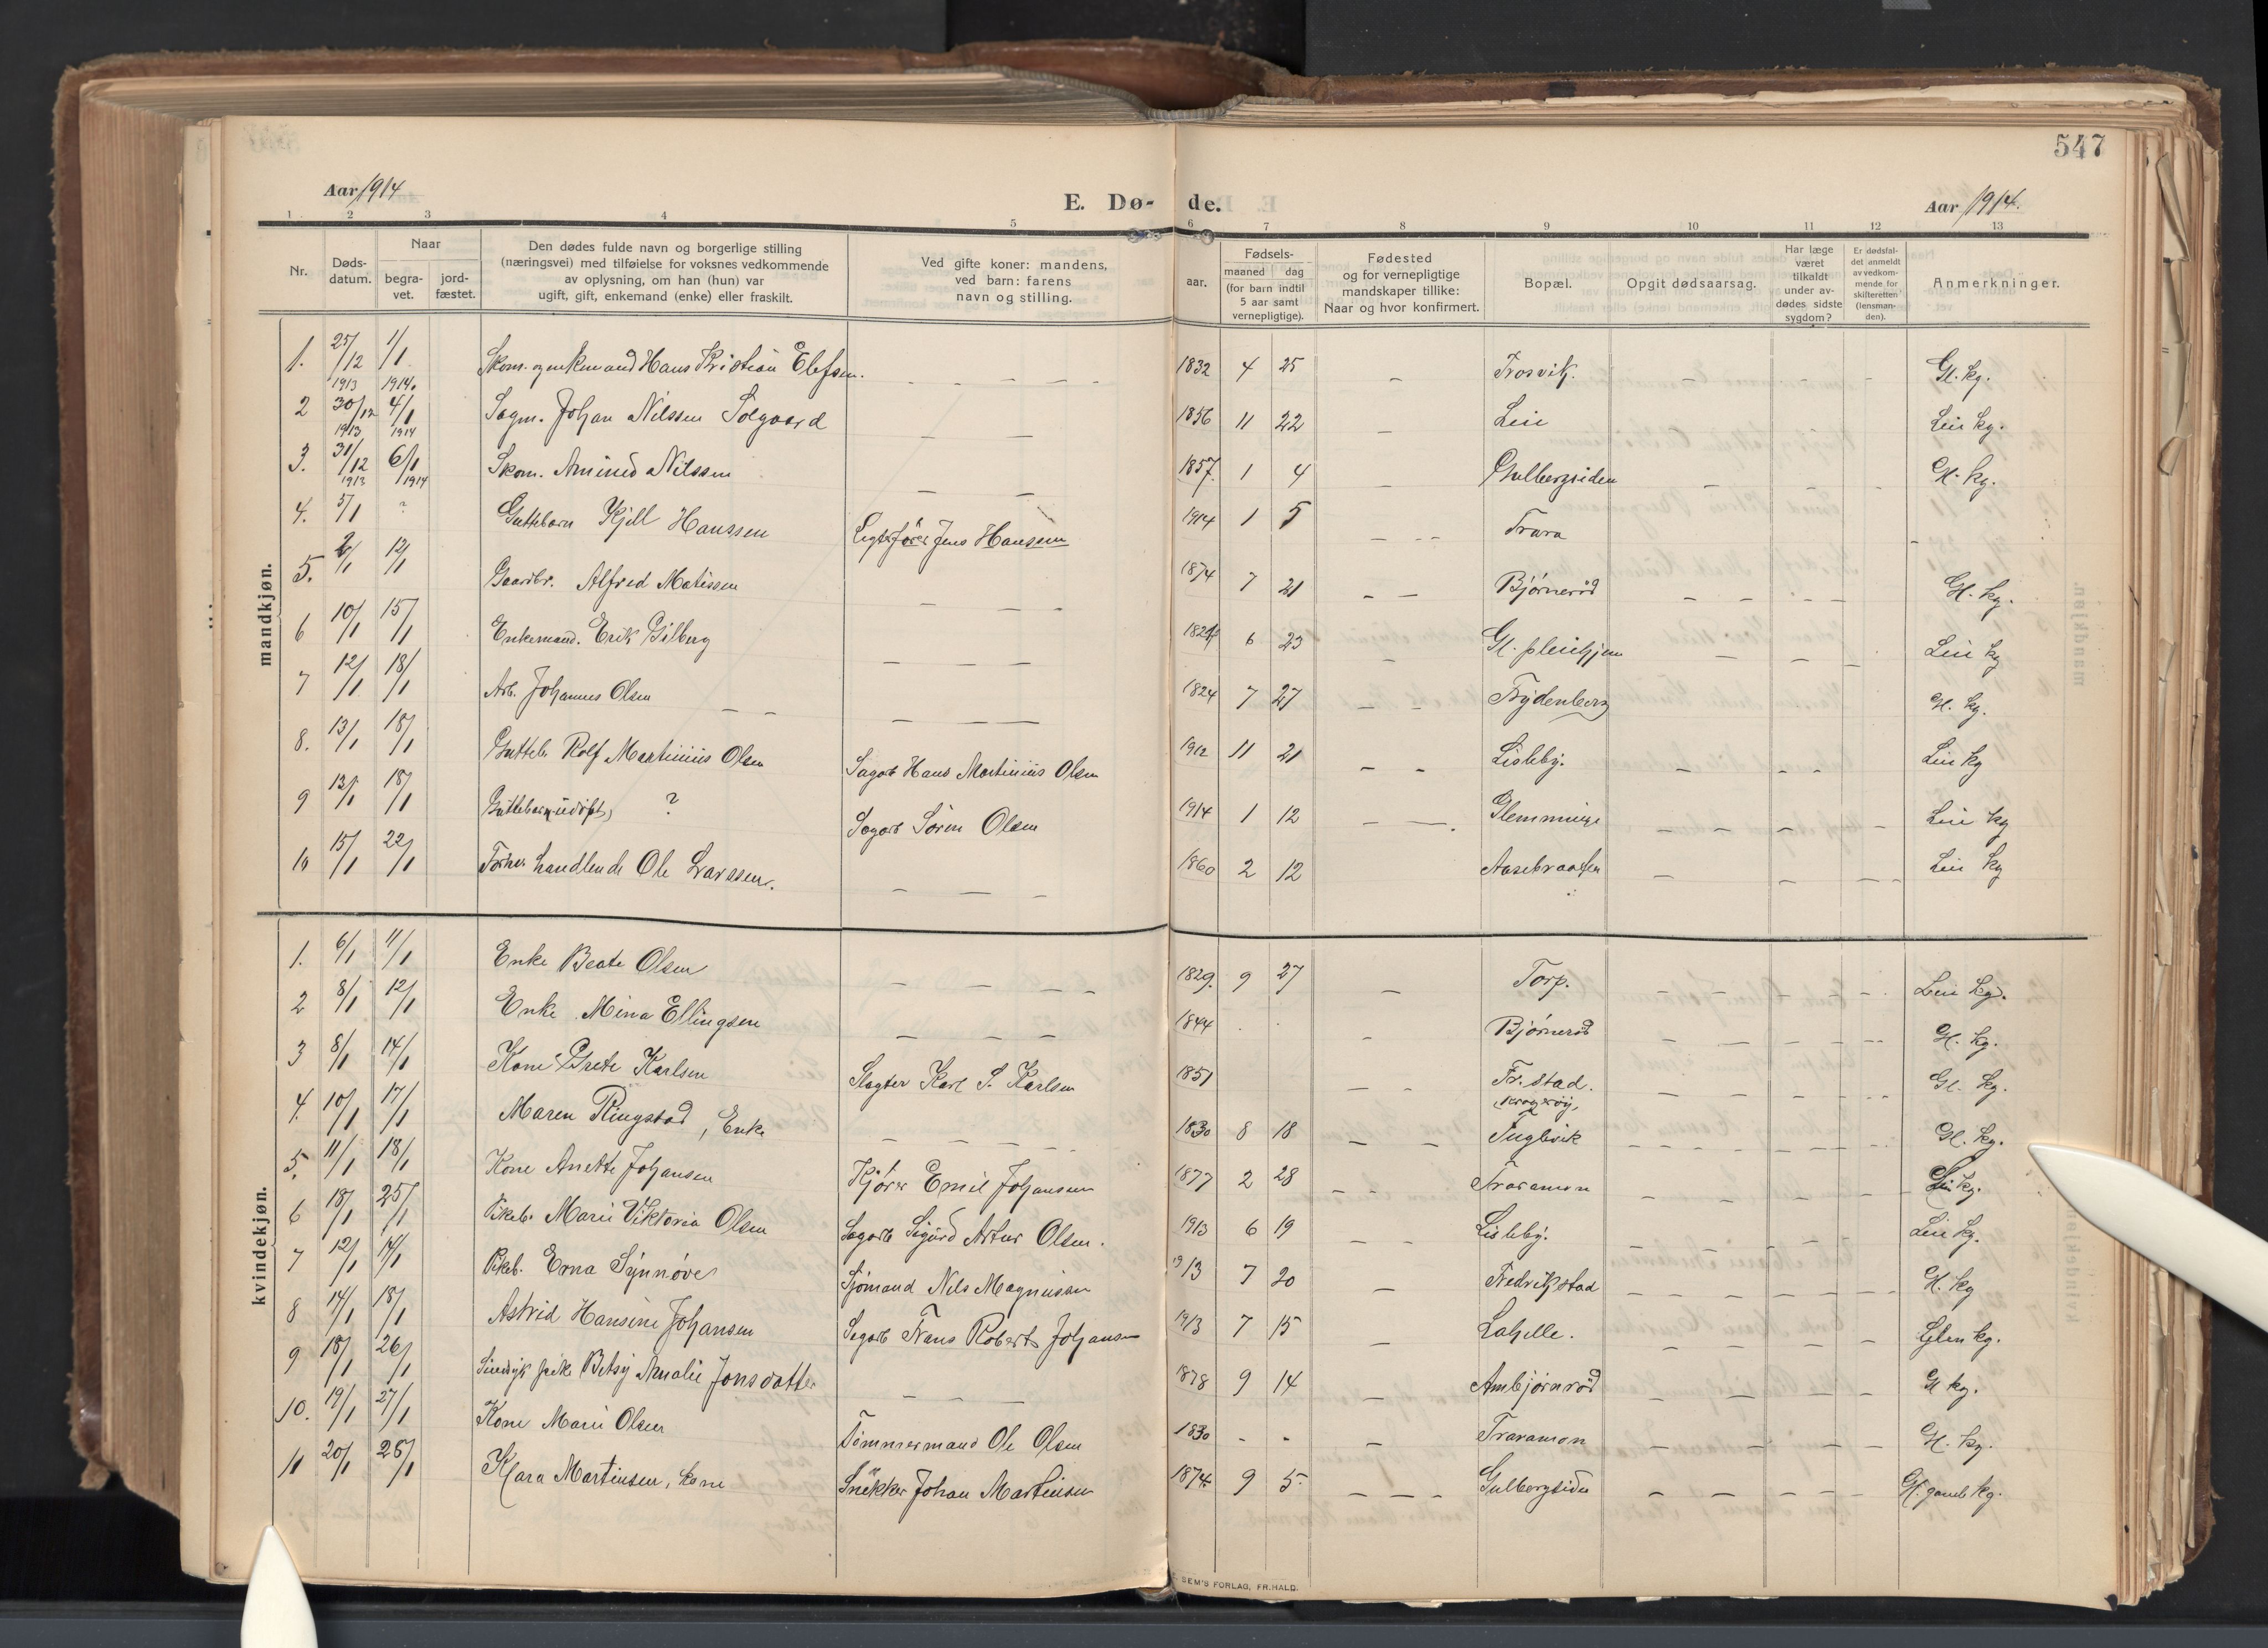 547
Aar 1914 E. Dø- de. Aar 1914.
1 2 3 4 5 6 7 8 9 10 11 12 13
Nr.
Døds-
datum.
Naar
begra-
vet.
jord-
fæstet.
Den dødes fulde navn og borgerlige stilling
(næringsvei) med tilføielse for voksnes vedkommende
av oplysning, om han (hun) var
ugift, gift, enkemand (enke) eller fraskilt.
Ved gifte koner: mandens,
ved barn: farens
navn og stilling.
Fødsels-
aar.
maaned dag
(for barn indtil
5 aar samt
vernepligtige).
Fødested
og for vernepligtige
mandskaper tillike:
Naar og hvor konfirmert.
Bopæl.
Opgit dødsaarsag.
Har læge
været
tilkaldt
under av-
dødes sidste
sygdom?
Er dødsfal-
det anmeldt
av vedkom-
mende for
skifteretten
(lensman-
den).
Anmerkninger.
mandkjøn.
1. 25/12 1913 1/1 1914. Skom. og enkemand Hans Kristian Elefsen. — — — — 1832 4 25 — Trosvik. — — — Gl. kg.
2 30/12 1913 4/1 1914 Sagm. Johan Nilssen Solgaard — — 1856 11 22 — Leie Leie kg.
3. 31/12 1913 6/1 1914 Skom. Amined Nilssen — — 1857. 1 4 — Gulbergsiden — — — — Gl. kg.
4. 5/1 ? Guttebarn Kjell Hanssen Jens Hanssen 1914 1 5 — — — Trara —
5. 2/1 12/1 Gaardbr. Alfred Matissen — — — 1874 7 21 — — Bjørnerød — — — — Gl. kg.
6 10/1 15/1 Enkemand. Erik Gilberg — — — 6 23 — Gl. pleiehjem — — — Leie kg
7 12/1 18/1 Arb. Johannes Olsen — — — — — 1824 7 27 — — Frydenberg Gl. kg.
8. 13/1 18/1 Gutteb. Rolf Martinius Olsen Sagarb Hans Martinius Olsen 1912 11 21 — — Lisleby. — — — — Leie kg
9 13/1 18/1 Guttebarn (udøpt) ? Sagarb Søren Olsen 1914 1 12 — —. Glemminge — — — — Leie kg
10 15/1 22/1 Forhv. handlende Ole Larssen. — — — 1860 2 12 Aasebraaten — — — — Leie kg
kvindekjøn.
1. 6/1 11/1 Enke Beate Olsen — — — — 1829. 9 27 — Torp. — — — — Leie kg.
2 8/1 12/1 Enke Mina Ellingsen — — — 1844 — Bjørnerød — — — — Gl. kg.
3 8/1 14/1 Kone Grete Karlsen Slagter Karl S. Karlsen 1851 — — Fr.stad. — — — — Gl. kg.
4. 10/1 17/1 Maren Ringstad, Enke — — — — 1830 8 18 — — Krogerøy, Fuglevik — — — — Gl. kg.
5. 11/1 18/1 Kone Anette Johansen Kjører Emil Johansen 1877 2 28 — — Traramon — — — — Leie kg.
6 18/1 25/1 Pikeb. Marie Viktoria Olsen Sagarb Sigurd Artur Olsen. 1913 6 19 — — Lisleby. — — — — Leie kg.
7 12/1 14/1 Pikeb. Erna Synnøve Sjømand Nils Magnussen 1913 7 20 — Fredrikstad — — — — Gl. kg
8 14/1 18/1 Astrid Hansine Johansen Sagarb Frans Robert Johansen 1913 7 15 — Lahelle. — — — — Glem kg.
9 18/1 26/1 Sindsyk pike Betsy Amalie Jonsdatter — — — 1878 9 14 — Ambjørnrød — — — — Gl kg.
10. 19/1 27/1 Kone Marie Olsen Tømmermand Ole Olsen 1830 - - — Traramon — — — — Gl. kg.
11 20/1 26/1 Klara Martinsen, kone Snekker Johan Martinsen 1874. 9 5. — — — Gulbergsiden — — — — Gl. gamle kg.
SEM'S FORLAG, FR.HALD.